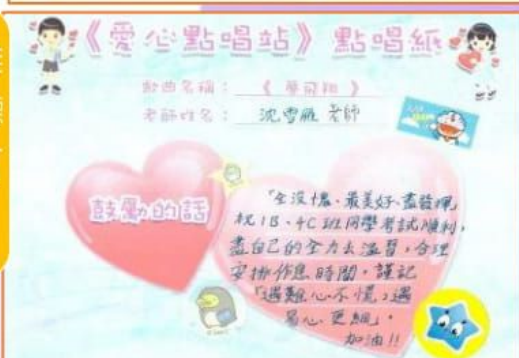 《愛心點唱站》點唱紙
歌曲名稱：《夢飛翔》
老師姓名：沈雪雁 老師
鼓勵的話
「全沒憾、最美好、盡發揮」
祝1B、4C班同學考試順利，
盡自己的全力去溫習，合理
安排作息時間，謹記
「遇難心不慌，遇
易心更細」。
加油!!